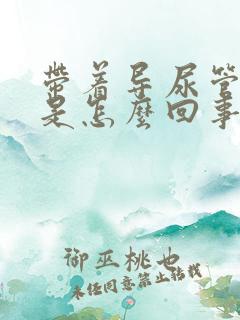 带着导尿管
是怎麽回事
御巫桃也
未经同意禁止转载